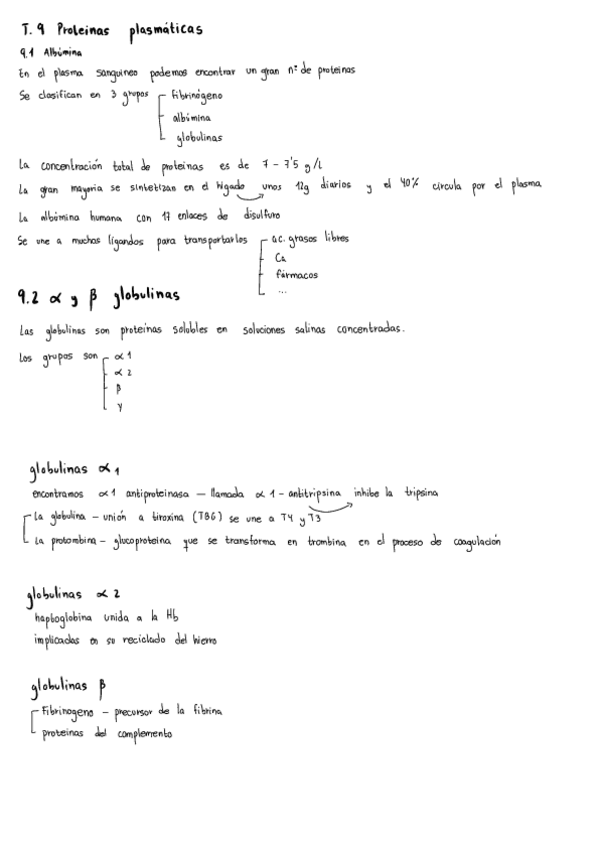 T.9 Proteinas plasmáticas
9.1 Albúmina
En el plasma sanguineo podemos encontrar un gran nº de proteinas
Se clasifican en 3 grupos fibrinógeno
albúmina
globulinas
La concentración total de proteinas es de 7 - 7'5 g/L
La gran mayoria se sintetizan en el higado unos 12g diarios y el 40% circula por el plasma
La albúmina humana con 17 enlaces de disulfuro
Se une a muchos ligandos para transportarlos ac. grasos libres
Ca
fármacos
...
9.2 α y β globulinas
Las globulinas son proteinas solubles en soluciones salinas concentradas.
Los grupos son α1
α2
β
γ
globulinas α1
encontramos α1 antiproteinasa — llamada α1-antitripsina inhibe la tripsina
La globulina - unión a tiroxina (TBG) se une a T4 y T3
La protombina - glucoproteina que se transforma en trombina en el proceso de coagulación
globulinas α2
haptoglobina unida a la Hb
implicadas en su reciclado del hierro
globulinas β
Fibrinogeno - precursor de la fibrina
proteinas del complemento